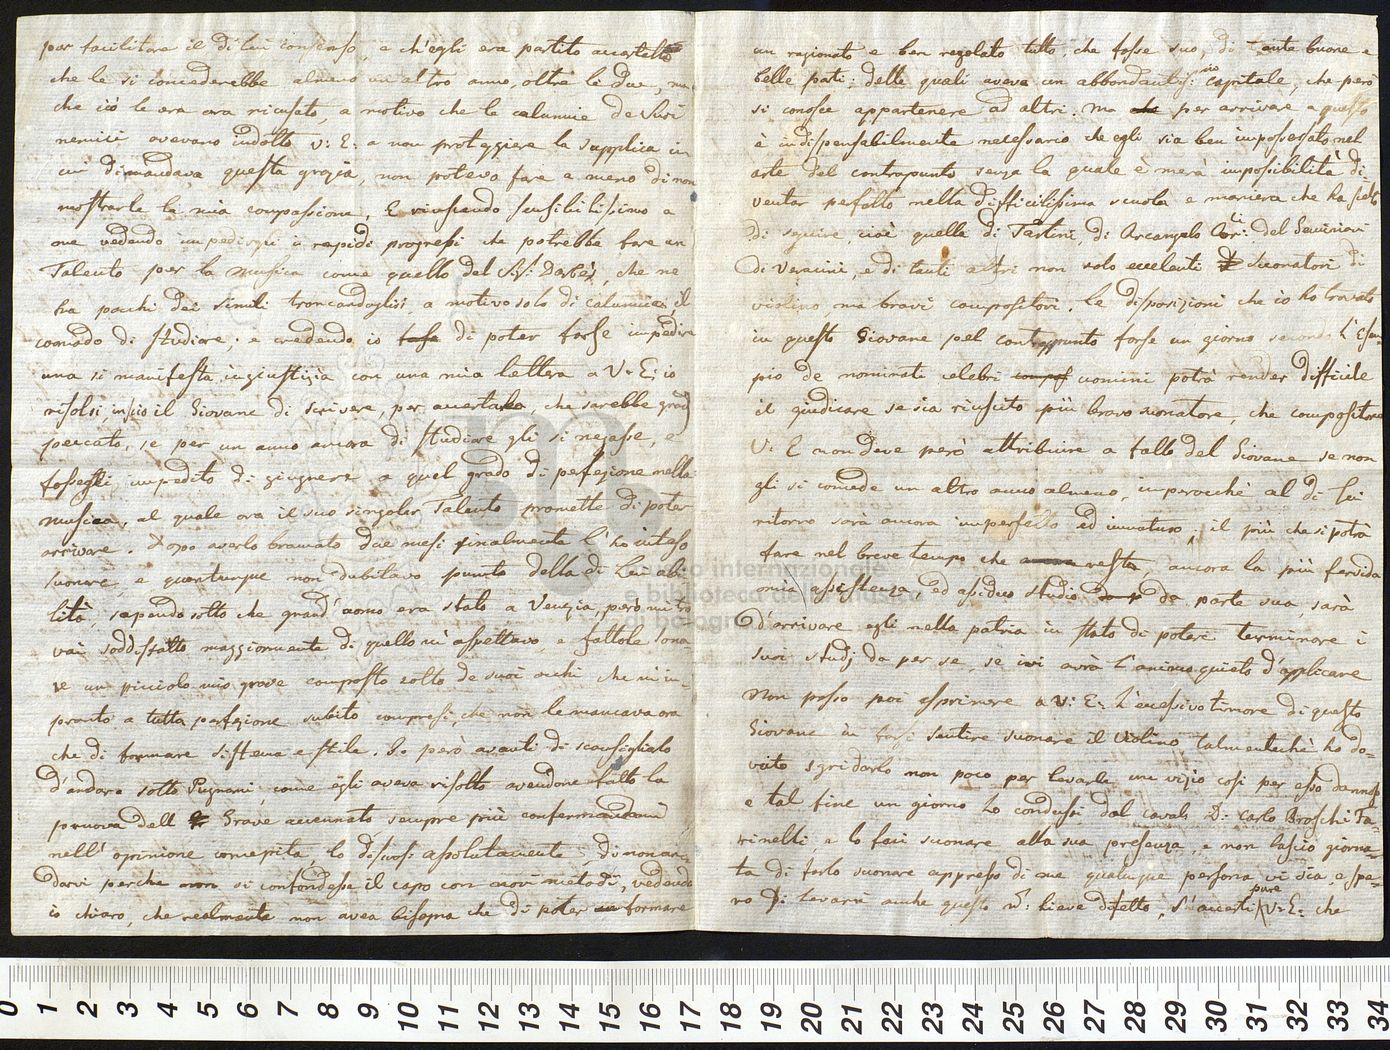 per facilitare il di lui consenso, e ch'egli era partito accertato
che le si concederebbe almeno un altro anno, oltre le due, ma
che ciò le era ora ricusato, a motivo che le calunnie de Suoi
nemici avevano indotto V: E: a non proteggere la supplica in
cui dimandava questa grazia, non potevo fare a meno di non
mostrarle la mia compassione, E riuscendo sensibilissimo a
me vedendo impedirgli i rapidi progressi che potrebbe fare un
Talento per la musica come quello del Sig: Darbès, che ne
ha pochi dei simili troncandoglisi, a motivo solo di calunnia, il
comodo di studiare. e credendo io di poter forse impedire
una si manifesta ingiustizia con una mia lettera a V: E: io
risolsi inscio il Giovane di scrivere, per accertarla, che sarebbe gran
peccato, se per un anno ancora di studiare gli si negasse, e
fossegli impedito di giugnere a quel grado di perfezione nella
musica, al quale ora il suo singolar Talento promette di poter
arrivare. Dopo averlo bramato due mesi finalmente l'ho inteso
suonare, e quantunque non dubitavo punto della di Lui abi
lità, sapendo sotto che grand'uomo era stato a Venezia, però mi tro
vai soddisfatto maggiormente di quello m'aspettavo, e fattole sona
re un picciolo mio grave composto sotto de suoi occhi che m'im-
prontò a tutta perfezione subito compresi, che non le mancava ora
che di formare sistema e stile. Io però avanti di sconsigliarlo
d'andare sotto Pugnani, come egli aveva risolto avendone fatto la
pruova dell Grave accennato sempre più confermandomi
nell'opinione concepita, lo dissuasi assolutamente, di non an-
darvi perche non si confondesse il capo con nuovi metodi, vedendo
io chiaro, che realmente non avea bisogno che di poter formare
un ragionato e ben regolato tutto, che fosse suo, di tante buone e
belle parti; delle quali aveva un abbondantis:mo capitale, che però
si conosce appartenere ad altri: ma per arrivare a questo
è indispensabilmente necessario che egli sia ben impossessato nel
arte del contrapunto senza la quale è mera impossibilità di-
ventar perfetto nella difficilissima scuola e maniera che ha scelto
di seguire, cioè quella di Tartini, di Arcangelo Cor:li del Seminiani
di Veracini, e di tanti altri non solo eccelenti suonatori di
violino, ma bravi compositori. le disposizioni che io ho trovato
in questo Giovane pel contrappunto forse un giorno secondo l'Esem-
pio de nominati celebri uomini potrà render difficile
il giudicare se sia riuscito più bravo suonatore, che compositore
V: E non deve però attribuire a fallo del Giovane se non
gli si concede un altro anno almeno, imperocchè al di lui
ritorno sarà ancora imperfetto ed immaturo, il più che si potrà
fare nel breve tempo che resta, ancora la più fervida
assistenza, ed assiduo studio da parte sua, sarà
d'arrivare egli nella patria in stato di poter terminare i
suoi studj da per se, se ivi avrà l'animo quieto d'applicare
Non posso poi esprimere a V: E: l'eccessivo timore di questo
Giovane in farsi sentire suonare il violino, talmentechè ho do-
vuto sgridarlo non poco per levarle un vizio così per esso dannoso
e tal fine un giorno lo condussi dal Caval: D: Carlo Broschi Fa-
rinelli, e lo feci suonare alla sua presenza, e non lascio giorna-
ta di farlo suonare appresso di me qualunque persona vi sia, e spe-
ro di levarle anche questo n: lieve difetto, S'accerti pure V: E: che